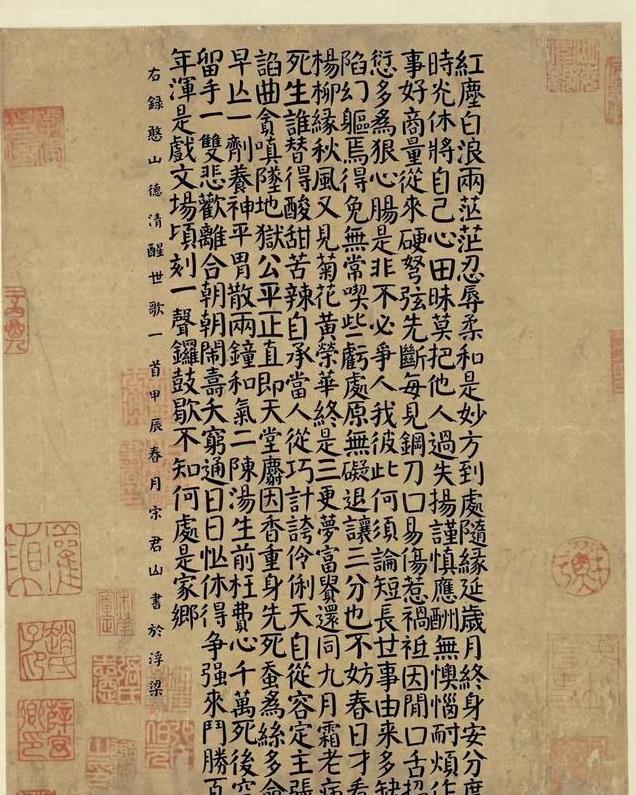 紅塵白浪兩茫茫忍辱柔和是妙方到處隨緣延歲月終身安分度
時光休將自己心田昧莫把他人過失揚謹慎應酬無懊惱耐煩作
事好商量從來硬弩弦先斷每見鋼刀口易傷惹禍祗因閒口舌招
愆多為狠心腸是非不必爭人我彼此何須論短長世事由來多缺
陷幻軀焉得免無常喫些虧處原無礙退讓三分也不妨春日才看
楊柳綠秋風又見菊花黃榮華終是三更夢富貴還同九月霜老病
死生誰替得酸甜苦辣自承當人從巧計誇伶俐天自從容定主張
諂曲貪嗔墜地獄公平正直即天堂麝因香重身先死蚕為絲多命
早亡一劑養神平胃散兩鐘和氣二陳湯生前枉費心千萬死後空
留手一雙悲歡離合朝朝鬧壽夭窮通日日忙休得爭强來鬥勝百
年渾是戲文場頃刻一聲鑼鼓歇不知何處是家鄉
右錄憨山德清醒世歌一首甲辰春月宋君山書於浮梁